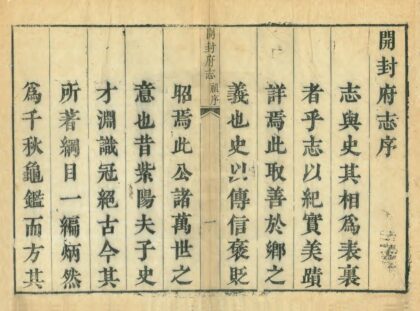 開封府志序
志與史其相為表裏
者乎志以紀實美蹟
詳焉此取善於鄉之
義也史以傳信褒貶
開封府志
顧序
一
昭焉此公諸萬世之
意也昔紫陽夫子史
才淵識冠絕古今其
所著綱目一編炳然
為千秋龜鑑而方其